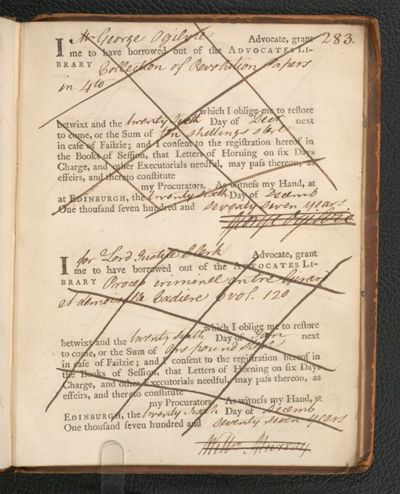 283.
I Mr George Ogilvie Advocate, grant
me to have borrowed out of the ADVOCATES LI-
BRARY Collection of Revolution Papers
in 4to
which I oblige me to reſtore
betwixt and the twenty sixth Day of Decr next
to come, or the Sum of ten shillings sterl
in caſe of Failzie; and I conſent to the regiſtration hereof in
the Books of Seſſion, that Letters of Horning on ſix Days
Charge, and other Executorials needful, may paſs thereon, as
effeirs, and thereto conſtitute
my Procurators. As witneſs my Hand, at
at EDINBURGH, the twenty sixth Day of Decemb
One thouſand ſeven hundred and seventy seven years
George Ogilvie
I for Lord Justice Clerk Advocate, grant
me to have borrowed out of the ADVOCATES LI-
BRARY Proces criminel entre Girard
et demoiselle Cadiere 2 vol. 120
which I oblige me to reſtore
betwixt and the twenty sixth Day of next
to come, or the Sum of One pound
in caſe of Failzie; and I conſent to the regiſtration hereof in
the Books of Seſſion, that Letters of Horning on ſix Days
Charge, and other Executorials needful, may paſs thereon, as
effeirs, and thereto conſtitute
my Procurators. As witneſs my Hand, at
EDINBURGH, the twenty sixth Day of Decemb
One thouſand ſeven hundred and seventy seven years
Murray